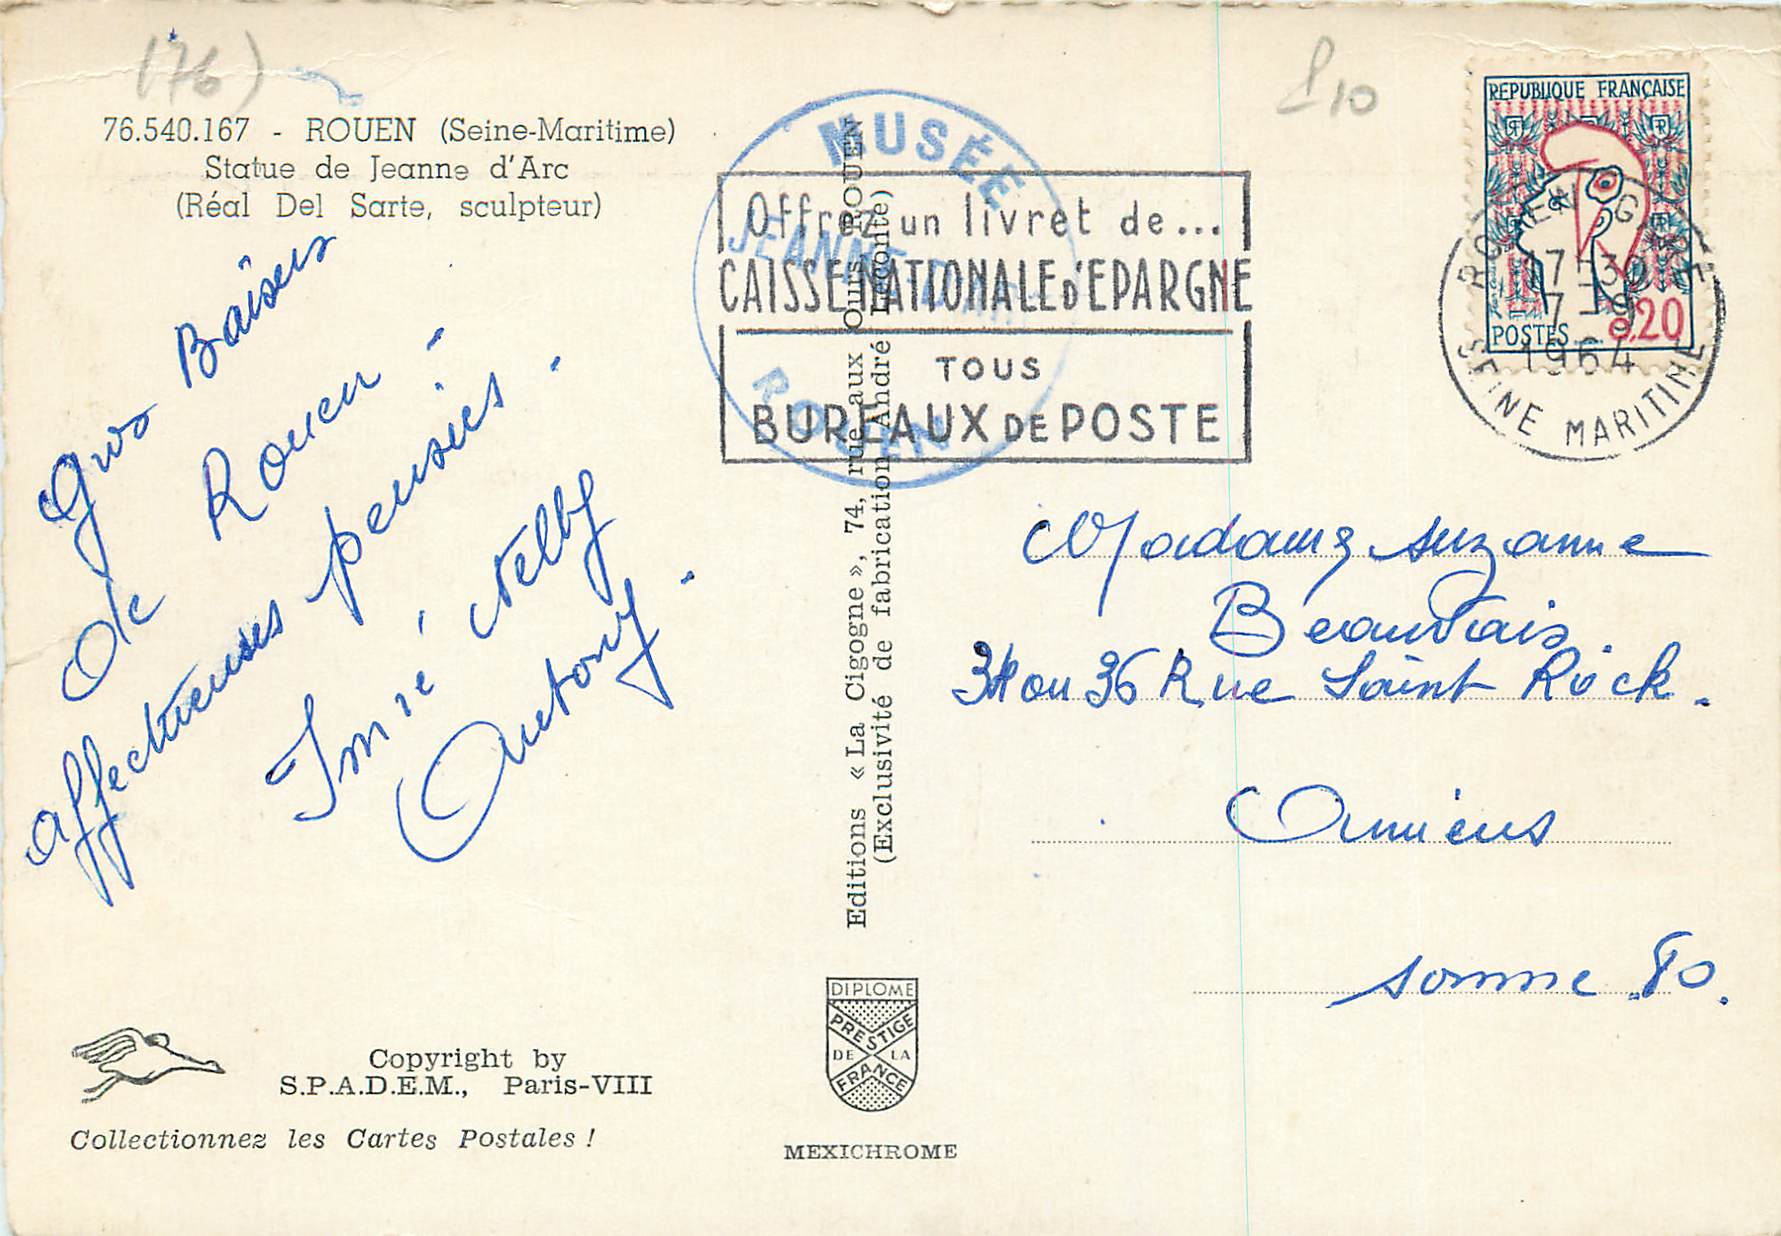 (76)
£10
76.540.167 - ROUEN (Seine-Maritime)
Statue de Jeanne d'Arc
(Réal Del Sarte, sculpteur)
Gros Baisers
de Rouen -
affectueuses pensées.
Imré Nelly
Antony.
MUSÉE
JEANNE D'ARC
ROUEN
Offrez un livret de...
CAISSE NATIONALE D'EPARGNE
TOUS
BUREAUX DE POSTE
REPUBLIQUE FRANÇAISE
POSTES 0,20
ROUEN GARE
17H30
7-9
1964
SEINE MARITIME
Editions « La Cigogne », 74, rue aux Ours, ROUEN
(Exclusivité de fabrication André Leconte)
Madame Suzanne
Beauvais.
34 ou 36 Rue Saint Rock.
Amiens
Somme 80.
Copyright by
S.P.A.D.E.M., Paris-VIII
Collectionnez les Cartes Postales !
DIPLOME
PRESTIGE
DE LA
FRANCE
MEXICHROME